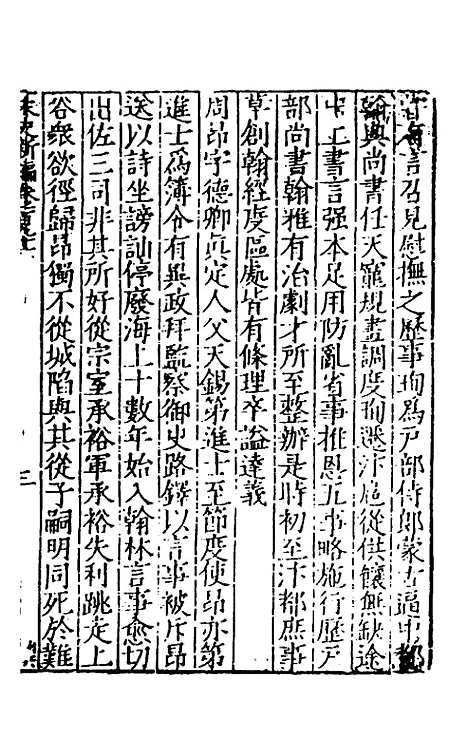 言召見慰撫之歷事珣爲戶部侍郎蒙古逼中都
翰與尚書任天寵規畫調度珣遷汴扈從供饟無缺途
中上書言强本足用防亂省事推恩五事略施行歷戶
部尚書翰雅有治劇才所至整辦是時初至汴都庶事
草創翰經度區處皆有條理卒謚達義
周昂字德卿真定人父天錫第進士至節度使昂亦第
進士爲簿令有異政拜監察御史路鐸以言事被斥昂
送以詩坐謗訕停廢海上十數年始入翰林言事愈切
出佐三司非其所好從宗室承裕軍承裕失利跳走上
谷衆欲徑歸昂獨不從城陷與其從子嗣明同死於難
宋史新編卷一百
三